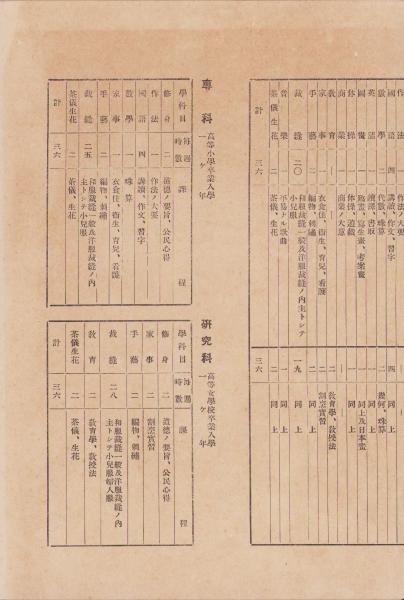 作法 作法ノ大要
國語 四 講讀、作文、習字 四 同上
數學 二 代數、珠算 幾何、珠算
英語 讀譯、書取
圖畫 一 臨畫、寫生畫、考案畫 一 同上及日本畫
體操 一 體操、遊戲 一 同上
商業 商業ノ大意
教育 教育學、教授法
家事 衣食住、衞生、育兒、看護 割烹實習
手藝 二 編物、刺繡 二 同上
裁縫 二〇 和服裁縫一般及洋服裁縫ノ內主トシテ小兒服 一九 同上
音樂 一 平易ナル歌曲 同上
茶儀生花 二 茶儀、生花 二 同上
計 三六 三六
專科 高等小學卒業入學 一ケ年
學科目 每週時數 課程
修身 二 道德ノ要旨、公民心得
作法 一 作法ノ大要
國語 四 講讀、作文、習字
數學 一 珠算
家事 一 衣食住、衞生、育兒、看護
手藝 二 編物、刺繡
裁縫 二五 和服裁縫一般及洋服裁縫ノ內
主トシテ小兒服
茶儀生花 二 茶儀、生花
計 三六
研究科 高等女學校卒業入學 一ケ年
學科目 每週時數 課程
修身 二 道德ノ要旨、公民心得
家事 二 割烹實習
手藝 二 編物、刺繡
裁縫 二八 和服裁縫一般及洋服裁縫ノ內
主トシテ小兒服婦人服
教育 二 教育學、教授法
茶儀生花 二 茶儀、生花
計 三六